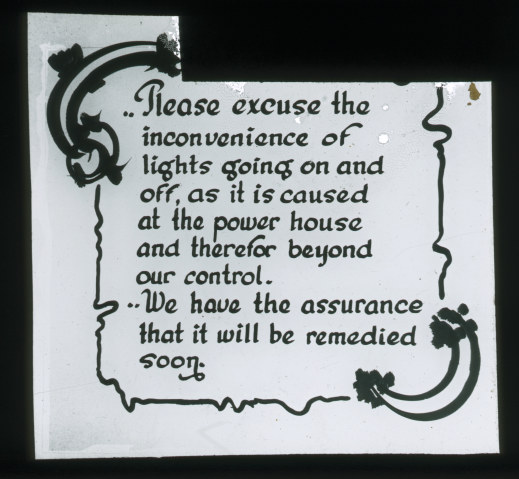 ..Please excuse the
inconvenience of
lights going on and
off, as it is caused
at the power house
and therefor beyond
our control.
..We have the assurance
that it will be remedied
soon.